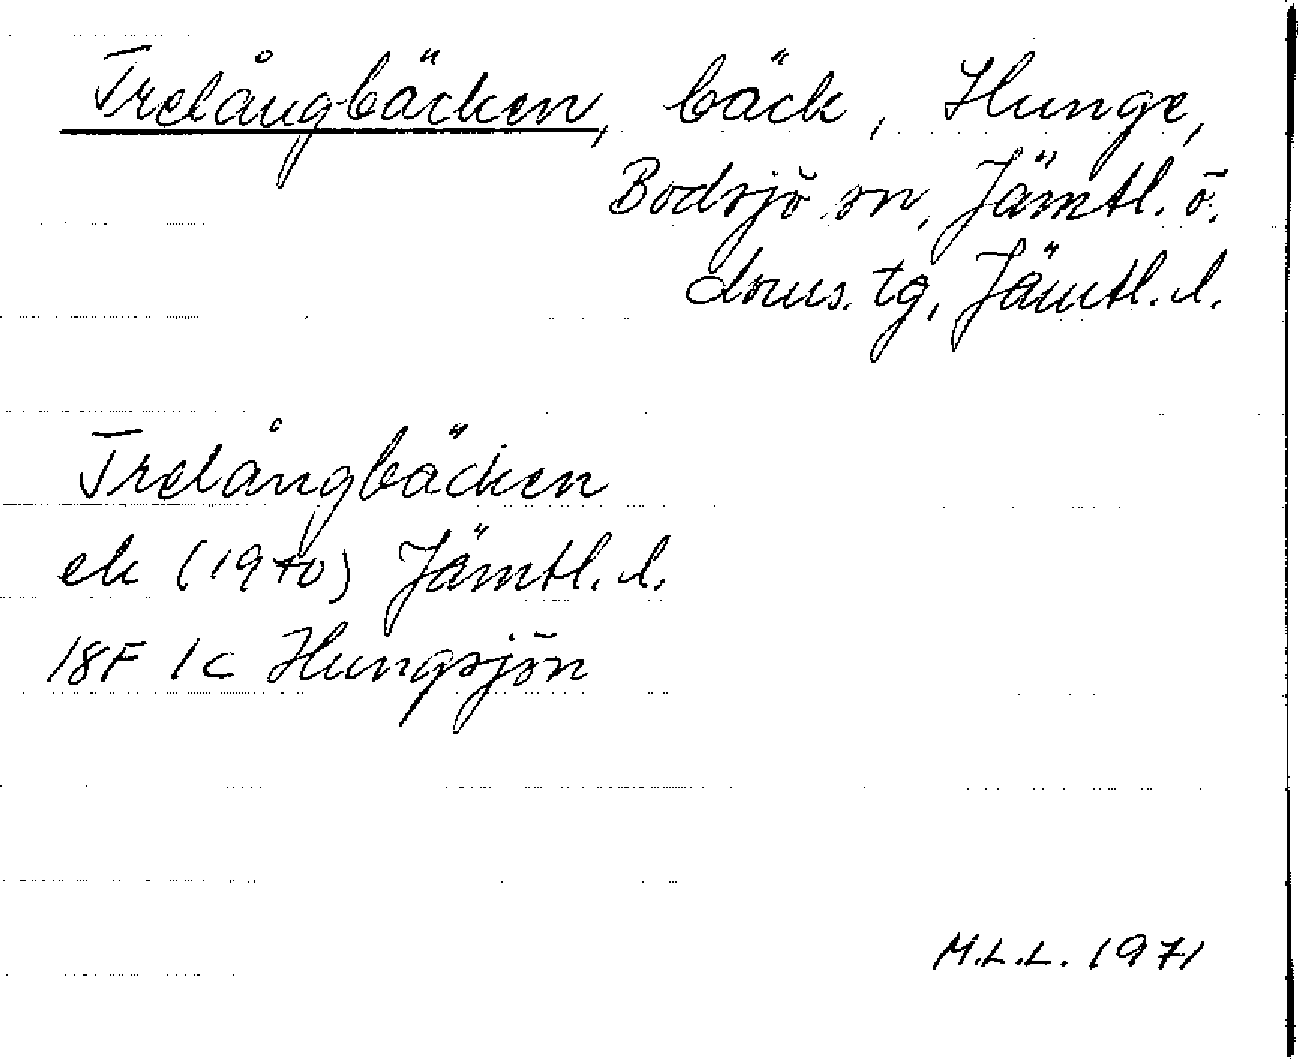 Trelångbäcken, bäck, Hunge,
Bodsjö sn, Jämtl. ö.
doms. tg, Jämtl. l.
Trelångbäcken
ek (1970) Jämtl. l.
18F 1c Hungsjön
M.L.L. 1971